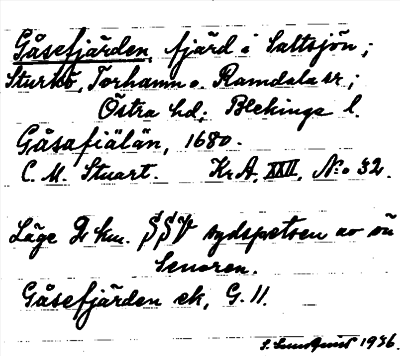 Gåsefjärden, fjärd i Saltsjön;
Sturkö, Torhamn o. Ramdala sr.;
Östra hd; Blekinge l.
Gåsafiälän, 1680.
C. M. Stuart. Kr.A. XXII, No 32.
Läge 2 km. SSV sydspetsen av ön
Senoren.
Gåsefjärden ek, G. 11.
S. Lundquist 1936.